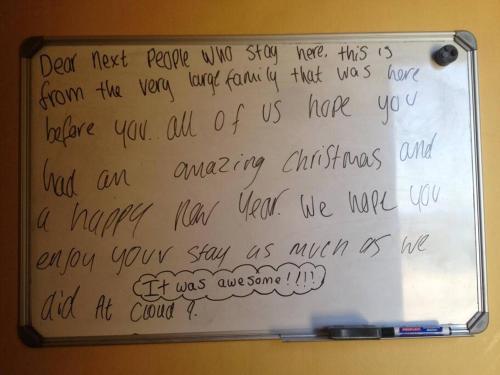 Dear next People who stay here. this is
from the very large family that was here
before you. all of us hope you
had an amazing christmas and
a happy new Year. We hope you
enjoy your stay as much as we
It was awesome!!!!
did At Cloud 9.